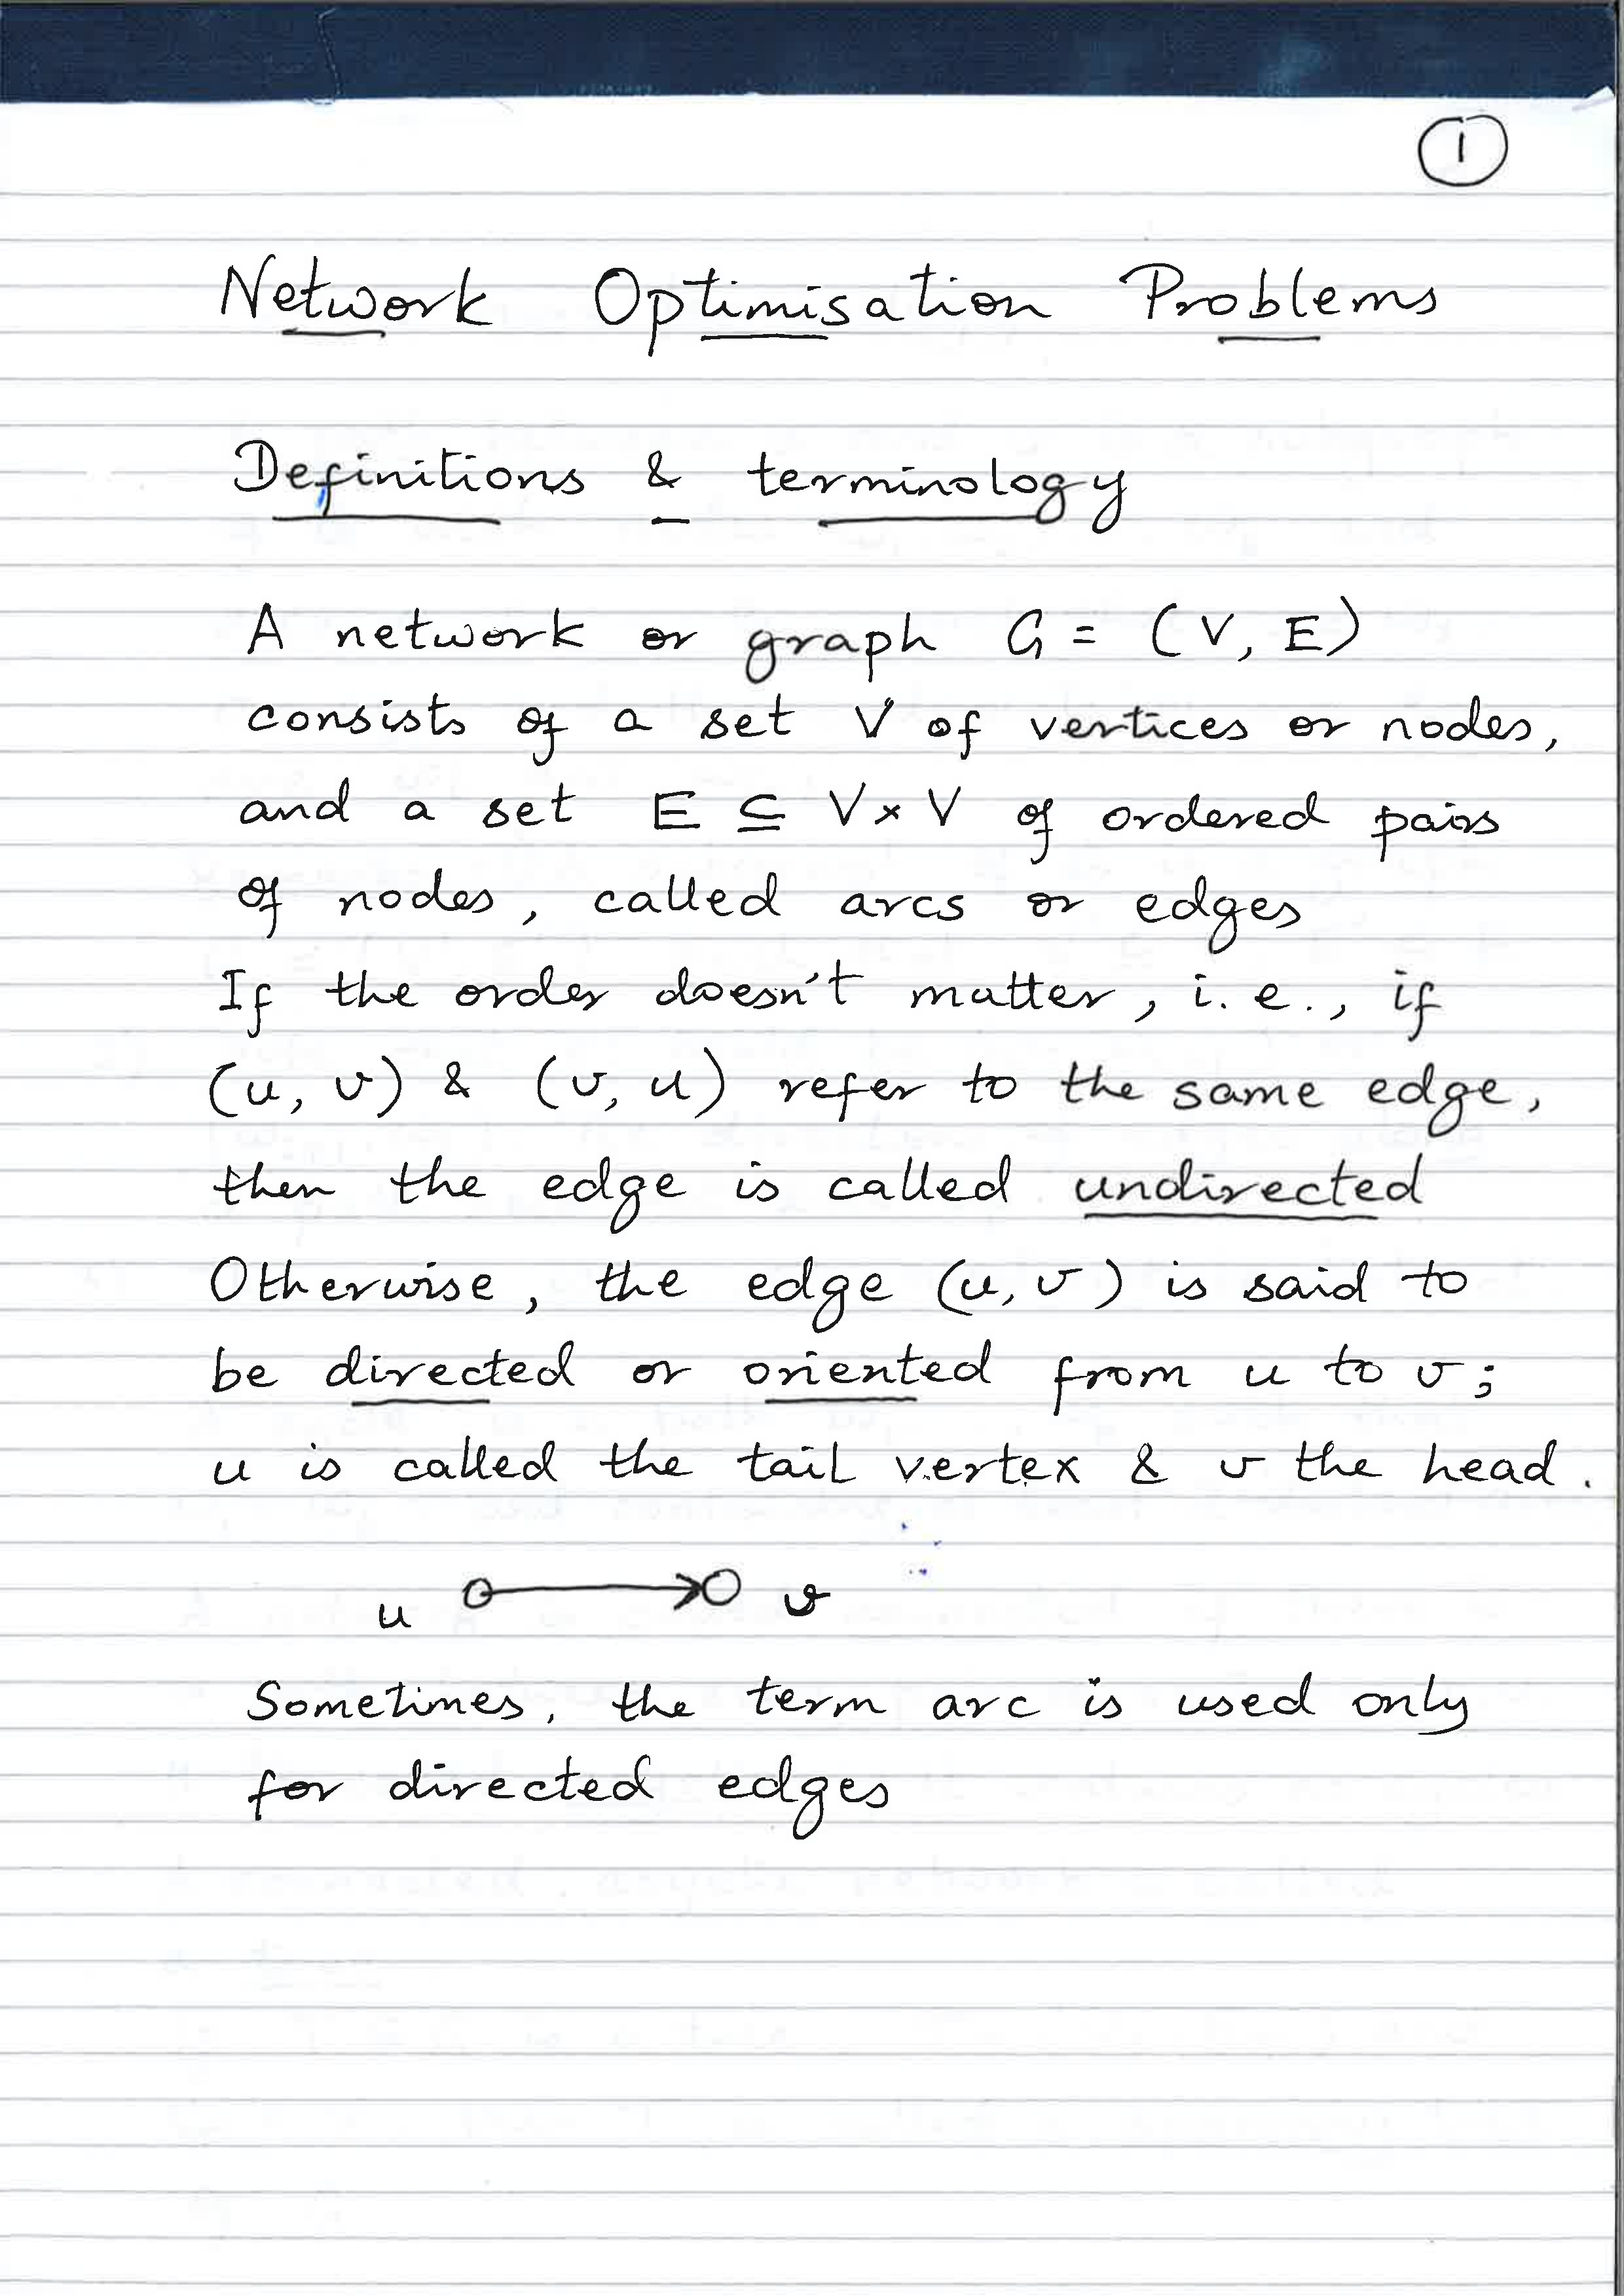 1
Network Optimisation Problems
Definitions & terminology
A network or graph G = (V, E)
consists of a set V of vertices or nodes,
and a set E ⊆ V × V of ordered pairs
of nodes, called arcs or edges
If the order doesn't matter, i.e., if
(u, v) & (v, u) refer to the same edge,
then the edge is called undirected
Otherwise, the edge (u, v) is said to
be directed or oriented from u to v;
u is called the tail vertex & v the head.
u v
Sometimes, the term arc is used only
for directed edges